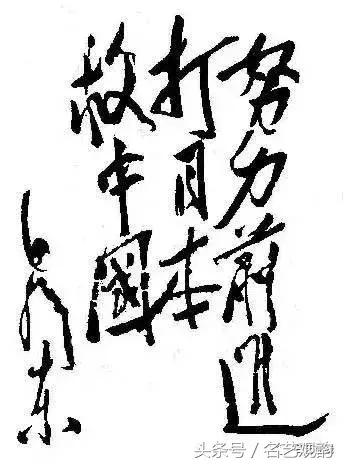 努力前進
打日本
救中國
毛澤东
头条号/名艺观韵